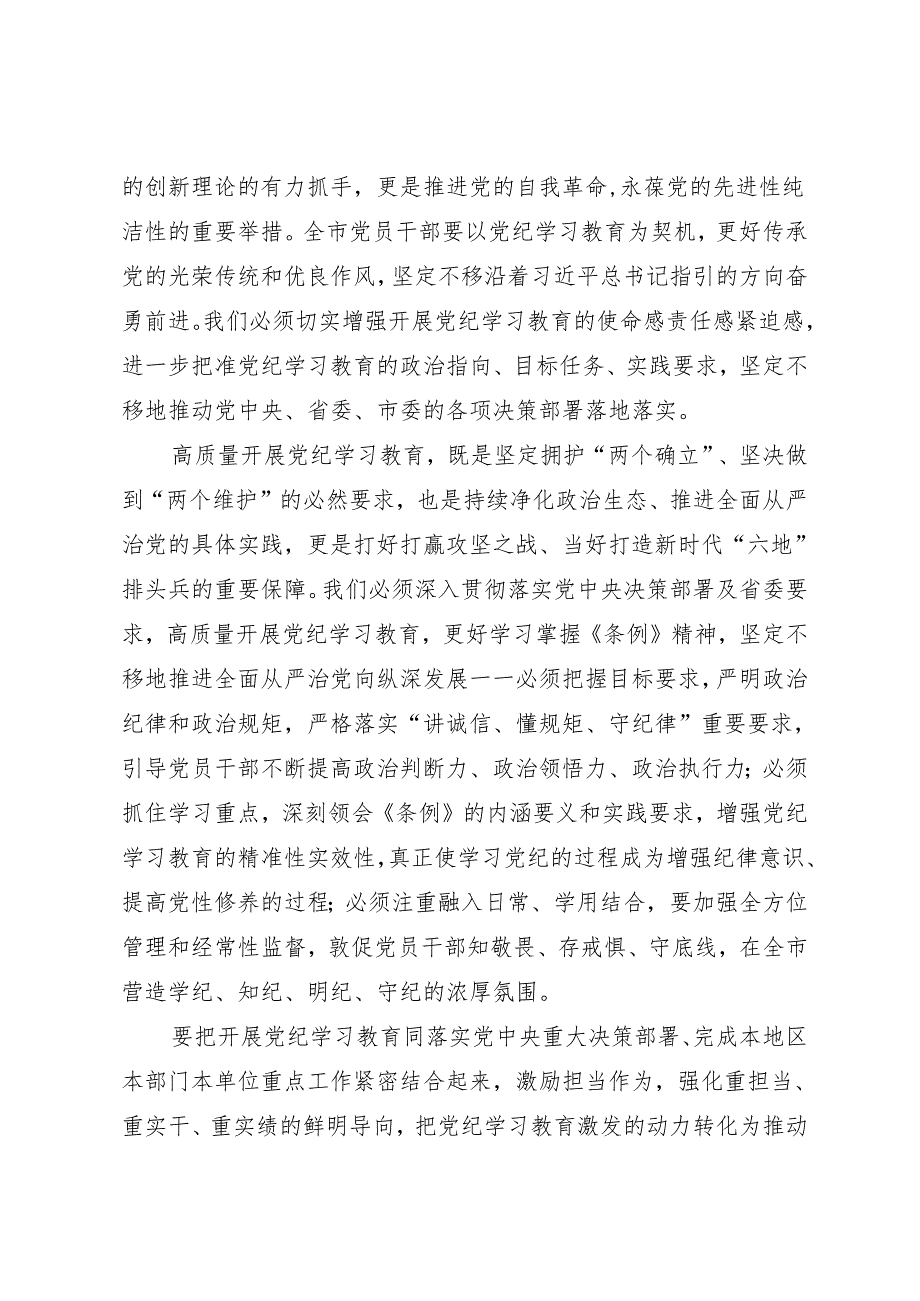 的创新理论的有力抓手，更是推进党的自我革命,永葆党的先进性纯
洁性的重要举措。全市党员干部要以党纪学习教育为契机，更好传承
党的光荣传统和优良作风，坚定不移沿着习近平总书记指引的方向奋
勇前进。我们必须切实增强开展党纪学习教育的使命感责任感紧迫感，
进一步把准党纪学习教育的政治指向、目标任务、实践要求，坚定不
移地推动党中央、省委、市委的各项决策部署落地落实。
高质量开展党纪学习教育，既是坚定拥护“两个确立”、坚决做
到“两个维护”的必然要求，也是持续净化政治生态、推进全面从严
治党的具体实践，更是打好打赢攻坚之战、当好打造新时代“六地”
排头兵的重要保障。我们必须深入贯彻落实党中央决策部署及省委要
求，高质量开展党纪学习教育，更好学习掌握《条例》精神，坚定不
移地推进全面从严治党向纵深发展一一必须把握目标要求，严明政治
纪律和政治规矩，严格落实“讲诚信、懂规矩、守纪律”重要要求，
引导党员干部不断提高政治判断力、政治领悟力、政治执行力；必须
抓住学习重点，深刻领会《条例》的内涵要义和实践要求，增强党纪
学习教育的精准性实效性，真正使学习党纪的过程成为增强纪律意识、
提高党性修养的过程；必须注重融入日常、学用结合，要加强全方位
管理和经常性监督，敦促党员干部知敬畏、存戒惧、守底线，在全市
营造学纪、知纪、明纪、守纪的浓厚氛围。
要把开展党纪学习教育同落实党中央重大决策部署、完成本地区
本部门本单位重点工作紧密结合起来，激励担当作为，强化重担当、
重实干、重实绩的鲜明导向，把党纪学习教育激发的动力转化为推动